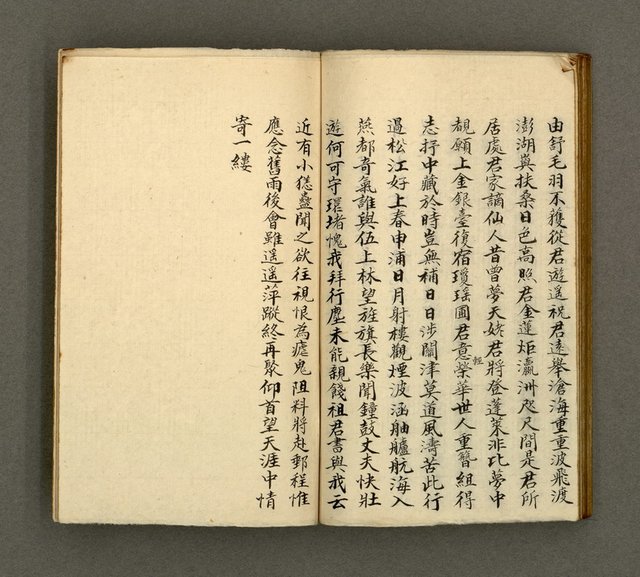 由舒毛羽不獲從君遊遥祝君遠舉滄海重重波飛渡
澎湖與扶桑日色高照君金蓮炬瀛洲咫尺間是君所
居處君家謫仙人昔曾夢天姥君將登蓬萊非比夢中
覩願上金銀臺復宿瓊瑶圃君意輕榮華世人重簪組得
志抒中藏於時豈無補日日涉關津莫道風濤苦此行
過松江好上春申浦日月射樓觀煙波涵舳艫航海入
燕都奇氣誰與伍上林望旌旗長樂聞鐘鼓丈夫快壯
遊何可守環堵愧我拜行塵未能親餞祖君書與我云
近有小穩蠱聞之欲往視恨為瘧鬼阻料將赴郵程惟
應念舊雨後會雖遥遥萍蹤終再聚仰首望天涯中情
寄一縷